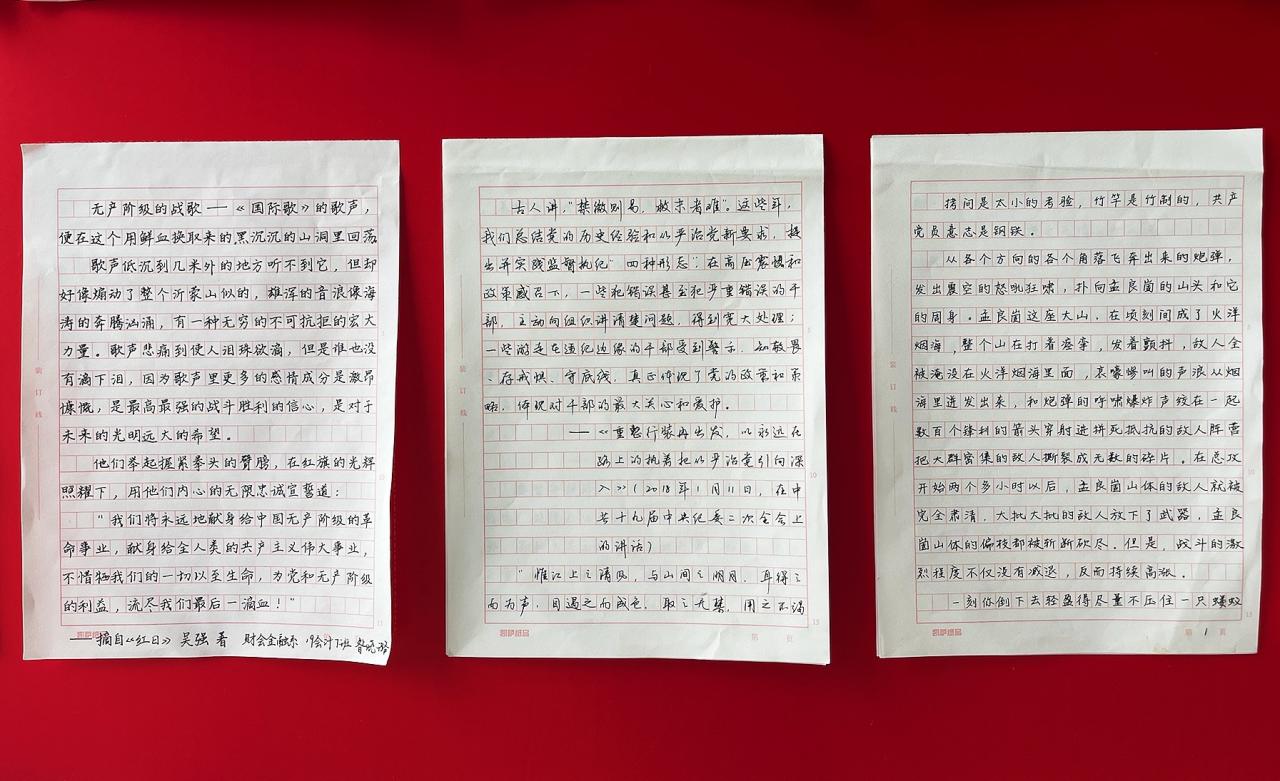 无产阶级的战歌——《国际歌》的歌声，
便在这个用鲜血换取来的黑沉沉的山洞里回荡
歌声低沉到几米外的地方听不到它，但却
好像煽动了整个沂蒙山似的，雄浑的音浪像海
涛的奔腾汹涌，有一种无穷的不可抗拒的宏大
力量。歌声悲痛到使人泪珠欲滴，但是谁也没
有滴下泪，因为歌声里更多的感情成分是激昂
慷慨，是最高最强的战斗胜利的信心，是对于
未来的光明远大的希望。
他们举起握紧拳头的臂膀，在红旗的光辉
照耀下，用他们内心的无限忠诚宣誓道：
“我们将永远地献身给中国无产阶级的革
命事业，献身给全人类的共产主义伟大事业，
不惜牺我们的一切以至生命，为党和无产阶级
的利益，流尽我们最后一滴血！”
——摘自《红日》 吴强 著 财会金融系 19会计
装订线
凯萨纸品
古人讲，“禁微则易，救末者难”。这些年，
我们总结党的历史经验和从严治党新要求，提
出并实践监督执纪“四种形态”：在高压震慑和
政策感召下，一些犯错误甚至犯严重错误的干
部，主动向组织讲清楚问题，得到宽大处理；
一些游走在违纪边缘的干部受到警示，知敬畏
、存戒惧、守底线，真正体现了党的政策和策
略，体现对干部的最大关心和爱护。
——《重整行装再出发，以永远在
路上的执着把从严治党引向深
入》（2018年1月11日，在中
共十九届中央纪委二次全会上
的讲话）
“惟江上之清风，与山间之明月，耳得之
而为声，目遇之而成色，取之无禁，用之不竭
凯萨纸品
第 页
拷问是太小的考验，竹竿是竹制的，共产
党员意志是钢铁。
从各个方向的各个角落飞奔出来的炮弹，
发出震空的怒吼狂啸，扑向孟良崮的山头和它
的周身。孟良崮这座大山，在顷刻间成了火洋
烟海，整个山在打着痉挛，发着颤抖，敌人全
被淹没在火洋烟海里面，哀嚎惨叫的声浪从烟
海里迸发出来，和炮弹的呼啸爆炸声绞在一起
数百个锋利的箭头穿射进拼死抵抗的敌人阵营
把大群密集的敌人撕裂成无数的碎片。在总攻
开始两个多小时以后，孟良崮山体的敌人就被
完全肃清，大批大批的敌人放下了武器，孟良
崮山体的偏枝都被斩断砍尽。但是，战斗的激
烈程度不仅没有减退，反而持续高涨。
一刻你倒下去轻盈得尽量不压住一只蚂蚁
装订线
凯萨纸品
第 1 页